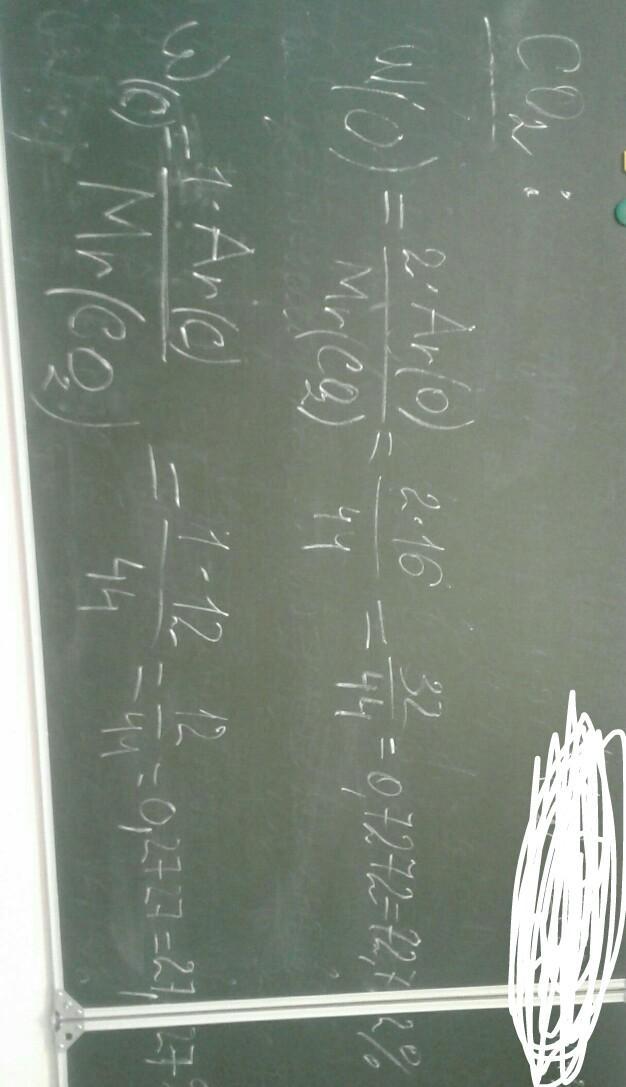 CO₂ :
W(O) = 2·Ar(O) / Mr(CO₂) = 2·16 / 44 = 32 / 44 = 0,7272 = 72,72%
W(C) = 1·Ar(C) / Mr(CO₂) = 1·12 / 44 = 12 / 44 = 0,2727 = 27,27%